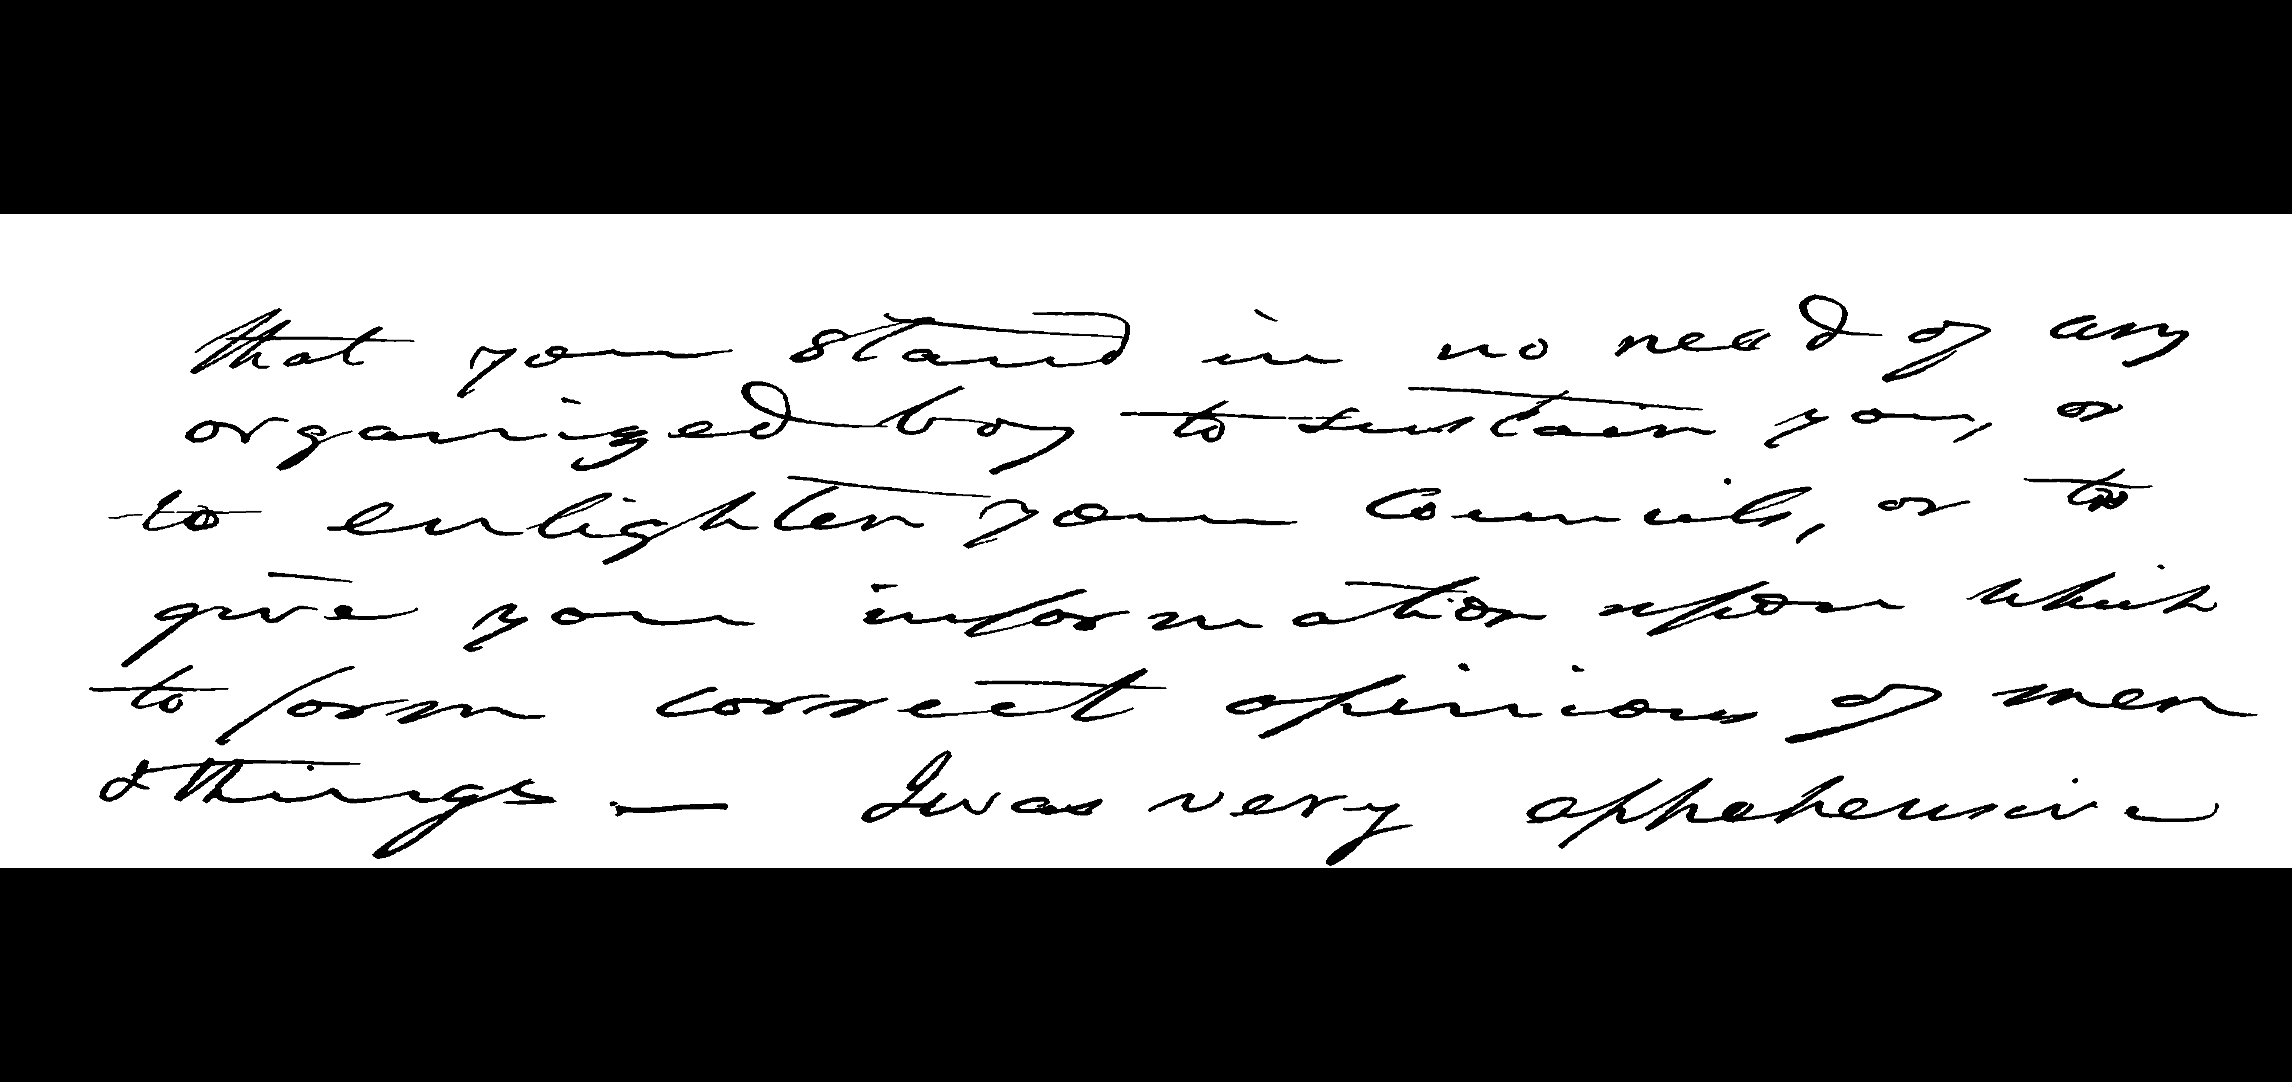 that you stand in no need of any
organized boy to sustain you, or
to enlighten your Councils, or to
give you information upon which
to form correct opinions of men
& things — I was very apprehensive